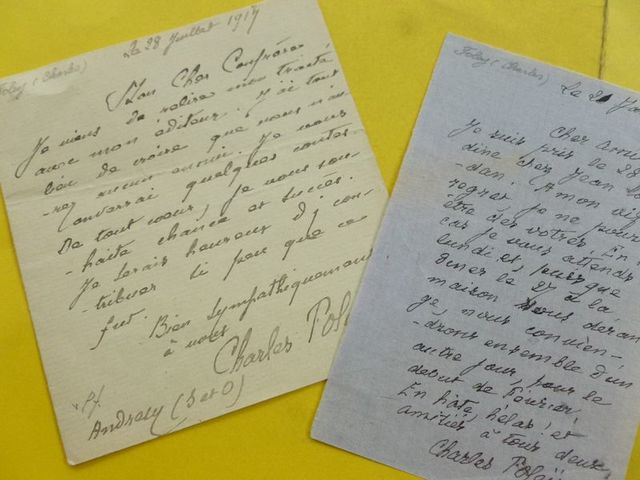 Foley (Charles)
Le 28 Juillet 1917
Mon Cher Confrère
Je viens de relire mon traité
avec mon éditeur. J'ai tout
lieu de croire que nous n'au-
-rez aucun ennui. Je vous
enverrai quelques contes.
De tout cœur, je vous sou-
-haite chance et succès.
Je serais heureux d'y con-
tribuer si peu que ce
fut.
Bien sympathiquement
à vous
Charles Foley
Andresy (S et O)
Foley (Charles)
Le 21 Jan
Cher ami
Je suis pris le 28
dîne chez Jean
-dan! (A mon
regret je ne pour
être des vôtres. En
car je vous attends
lundi et, puisque
dîner le 27 à la
maison vous déran
ge, nous convien-
-drons ensemble d'un
autre jour, pour le
début de Février!
En hâte, hélas! et
amitiés à tous deux,
Charles Foley